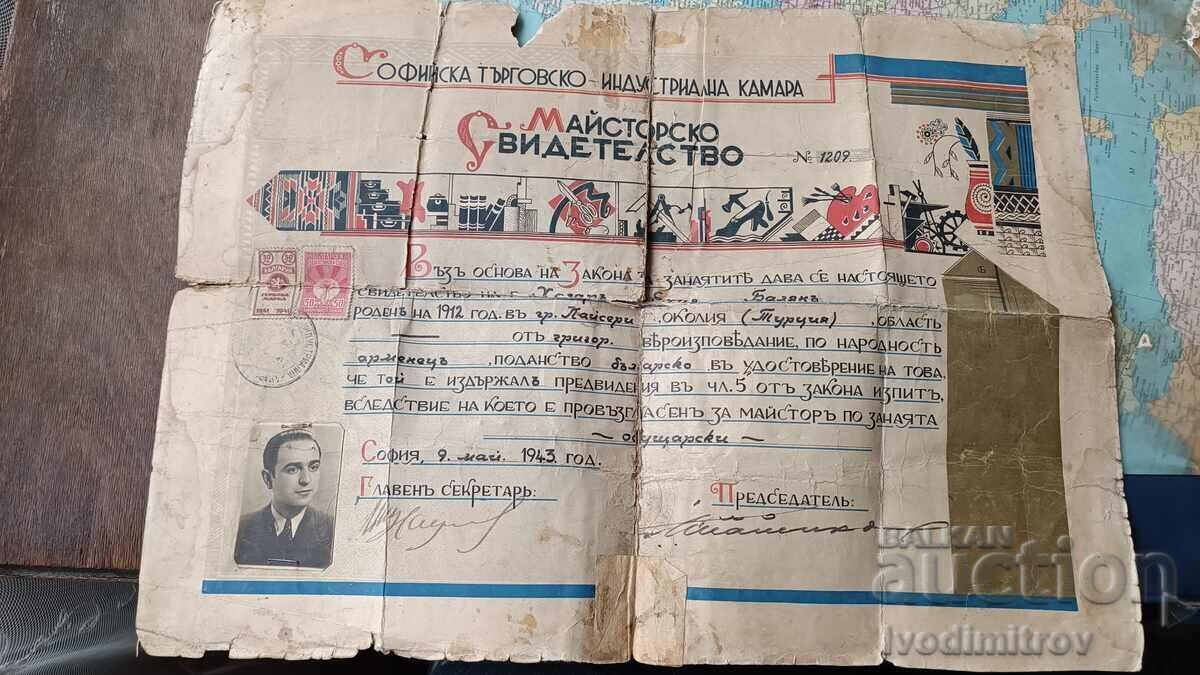 Софийска търговско-индустриална камара
Майсторско
Свидетелство
№ 1209
Възъ основа на Закона за занаятите дава се настоящето
свидетелство на г. Балянъ
роденъ на 1912 год. въ гр. Кайсери, околия (Турция), область
— отъ григор. вѣроизповѣдание, по народность
арменецъ, поданство българско въ удостовѣрение на това,
че той е издържалъ предвидения въ чл. 5 отъ закона изпитъ,
вследствие на което е провъзгласенъ за майсторъ по занаята
— обущарски —
София, 9. май. 1943. год.
Главенъ секретарь:
Председатель:
30 30
България
1941 1941
50 50
BALKAN
auction
ivodimitrov